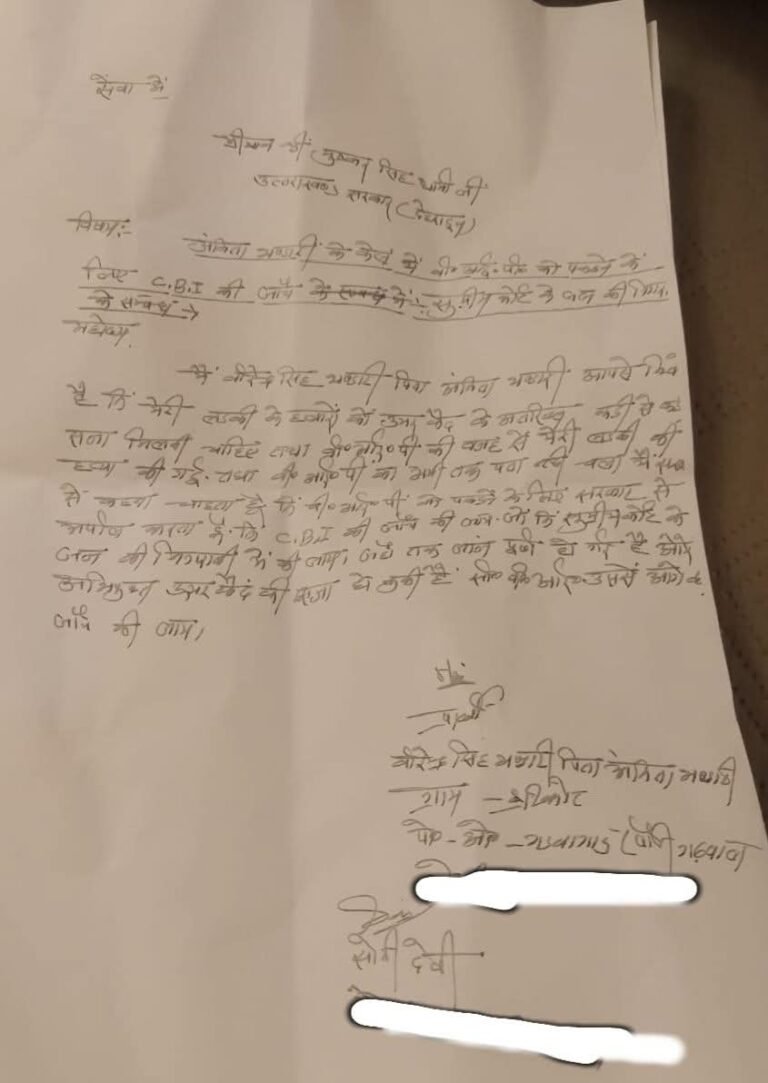 सेवा में
श्रीमान श्री पुष्कर सिंह धामी जी
उत्तराखण्ड सरकार (देहरादून)
विषय:-
अंकिता भण्डारी के केस में वी० आई० पी० को पकडने के
लिए C.B.I की जाँच के सम्बन्ध में: सुप्रीम कोर्ट के जज की
के सम्बन्ध में
महोदय,
मैं वीरेन्द्र सिंह भण्डारी पिता अंकिता भण्डारी आपसे
है कि मेरी लडकी के हत्यारों को उम्र कैद के अतिरिक्त कडी से कडी
सजा मिलनी चाहिए तथा वी० आई० पी की वजह से मेरी लडकी की
हत्या की गई. तथा वी० आई० पी का अभी तक पता नही चला मैं
से कहना चाहता हूँ कि वी० आई० पी को पकडने के लिए सरकार से
अपील करता हूँ कि C.B.I की जाँच की जाय. जो कि सुप्रीम कोर्ट के
जज की निगरानी में की जाय। जहाँ तक जांच पूर्ण हो गई है और
अभियुक्त उम्र कैद की सजा हो चुकी है सी० बी० आई० उससे आगे की
जाँच की जाय।
प्रार्थी
वीरेन्द्र सिंह भण्डारी पिता अंकिता भण्डारी
ग्राम - श्रीकोट
पो० - ओ० - (पौडी गढ़वाल
सोनी देवी